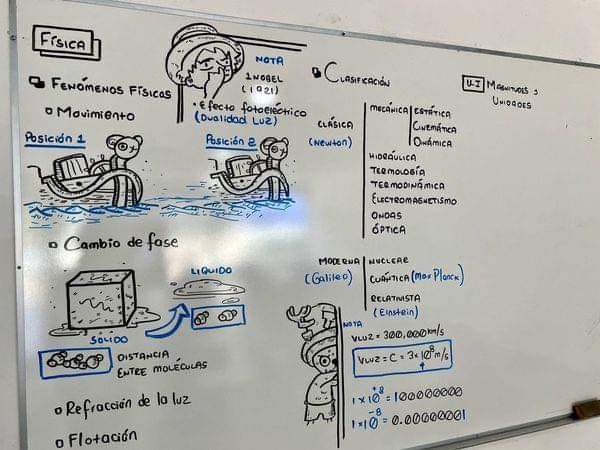 FÍSICA
FENÓMENOS FÍSICOS
Movimiento
Posición 1
Posición 2
NOTA
1 NOBEL
(1921)
• Efecto fotoeléctrico
(Dualidad Luz)
Cambio de fase
LIQUIDO
SÓLIDO
DISTANCIA
ENTRE MOLÉCULAS
Refracción de la luz
Flotación
CLASIFICACIÓN
CLÁSICA
(Newton)
MECÁNICA
ESTÁTICA
CINEMÁTICA
DINÁMICA
HIDRÁULICA
TERMOLOGÍA
TERMODINÁMICA
ELECTROMAGNETISMO
ONDAS
ÓPTICA
MODERNA
(Galileo)
NUCLEAR
CUÁNTICA (Max Planck)
RELATIVISTA
(Einstein)
NOTA
VLUZ = 300,000 km/s
VLUZ = C = 3x10⁸ m/s
1x10⁺⁸ = 100000000
1x10⁻⁸ = 0.00000001
U-I MAGNITUDES Y
UNIDADES